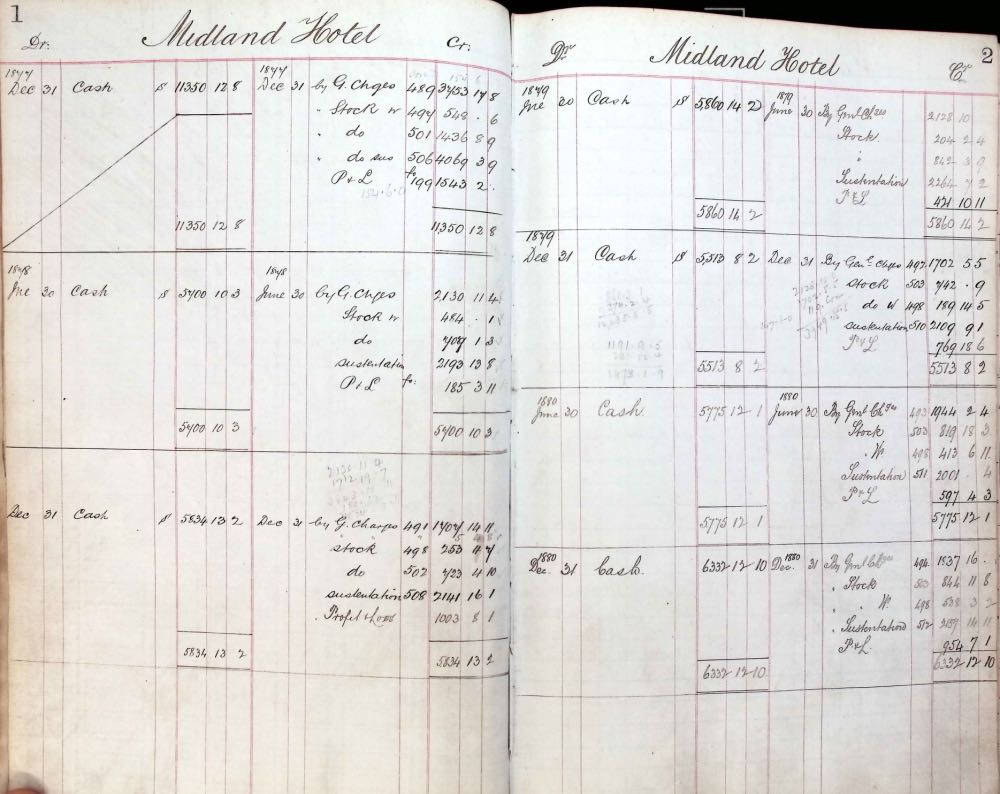 1
Midland Hotel
Dr: Cr:
1877 1877
Dec 31 Cash £ 11350 12 8 Dec 31 by G. Chges 489 3753 17 8
" Stock w 497 548 . 6
" do 501 1436 8 9
" do sus 506 4069 3 9
P & L fo 199 1543 2 .
154.6.0
11350 12 8 11350 12 8
1878 1878
Jne 30 Cash £ 5700 10 3 June 30 by G. Chges 2130 11 4
Stock w 484 . 1
do 707 1 3
sustentation 2193 13 8
P & L fo: 185 3 11
5700 10 3 5700 10 3
2130 11 4
1712 19 7
Dec 31 Cash £ 5834 13 2 Dec 31 by G. Charges 491 1707 14 11
" stock 498 253 4 7
do 502 723 4 10
sustentation 508 2141 16 1
" Profit & Loss 1003 8 1
5834 13 2 5834 13 2
2
Midland Hotel
Dr Cr
1879 1879
Jne 30 Cash £ 5860 14 2 June 30 By Gnl Chges 2128 10
Stock 204 2 4
" 842 3 9
Sustentation 2264 7 2
P & L 421 10 11
5860 14 2 5860 14 2
1879
Dec 31 Cash £ 5513 8 2 Dec 31 By Genl Chges 497 1702 5 5
stock 503 742 . 9
do w 498 189 14 5
sustentation 510 2109 9 1
P & L 769 18 6
5513 8 2 5513 8 2
1191.9.5
1880 1880
June 30 Cash. 5775 12 1 June 30 By Gnl Chges 493 1944 2 4
Stock 503 819 18 3
" W 498 413 6 11
Sustentation 511 2001 . 4
P & L 597 4 3
5775 12 1 5775 12 1
1880 1880
Dec. 31 Cash. 6332 12 10 Dec. 31 By Gnl Chges 494 1837 16 .
" Stock 503 844 11 8
" " W. 498 538 3 2
" Sustentation 512 2157 14 11
P & L. 954 7 1
6332 12 10 6332 12 10